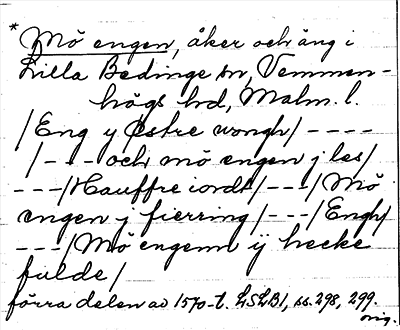 * Mö engen, åker och äng i
Lilla Bedinge sn, Vemmen-
högs hd, Malm. l.
/Eng y Østre wongh/ - - - -
/ - - - och mö engen j les/
- - - /Hauffre iordt/ - - - /Mö
engen j fierring/ - - - /Engh/
- - - /Mö engenn ÿ hecke
fulde/
förra delen av 1570-t. LSLB1, ss. 298, 299.
orig.